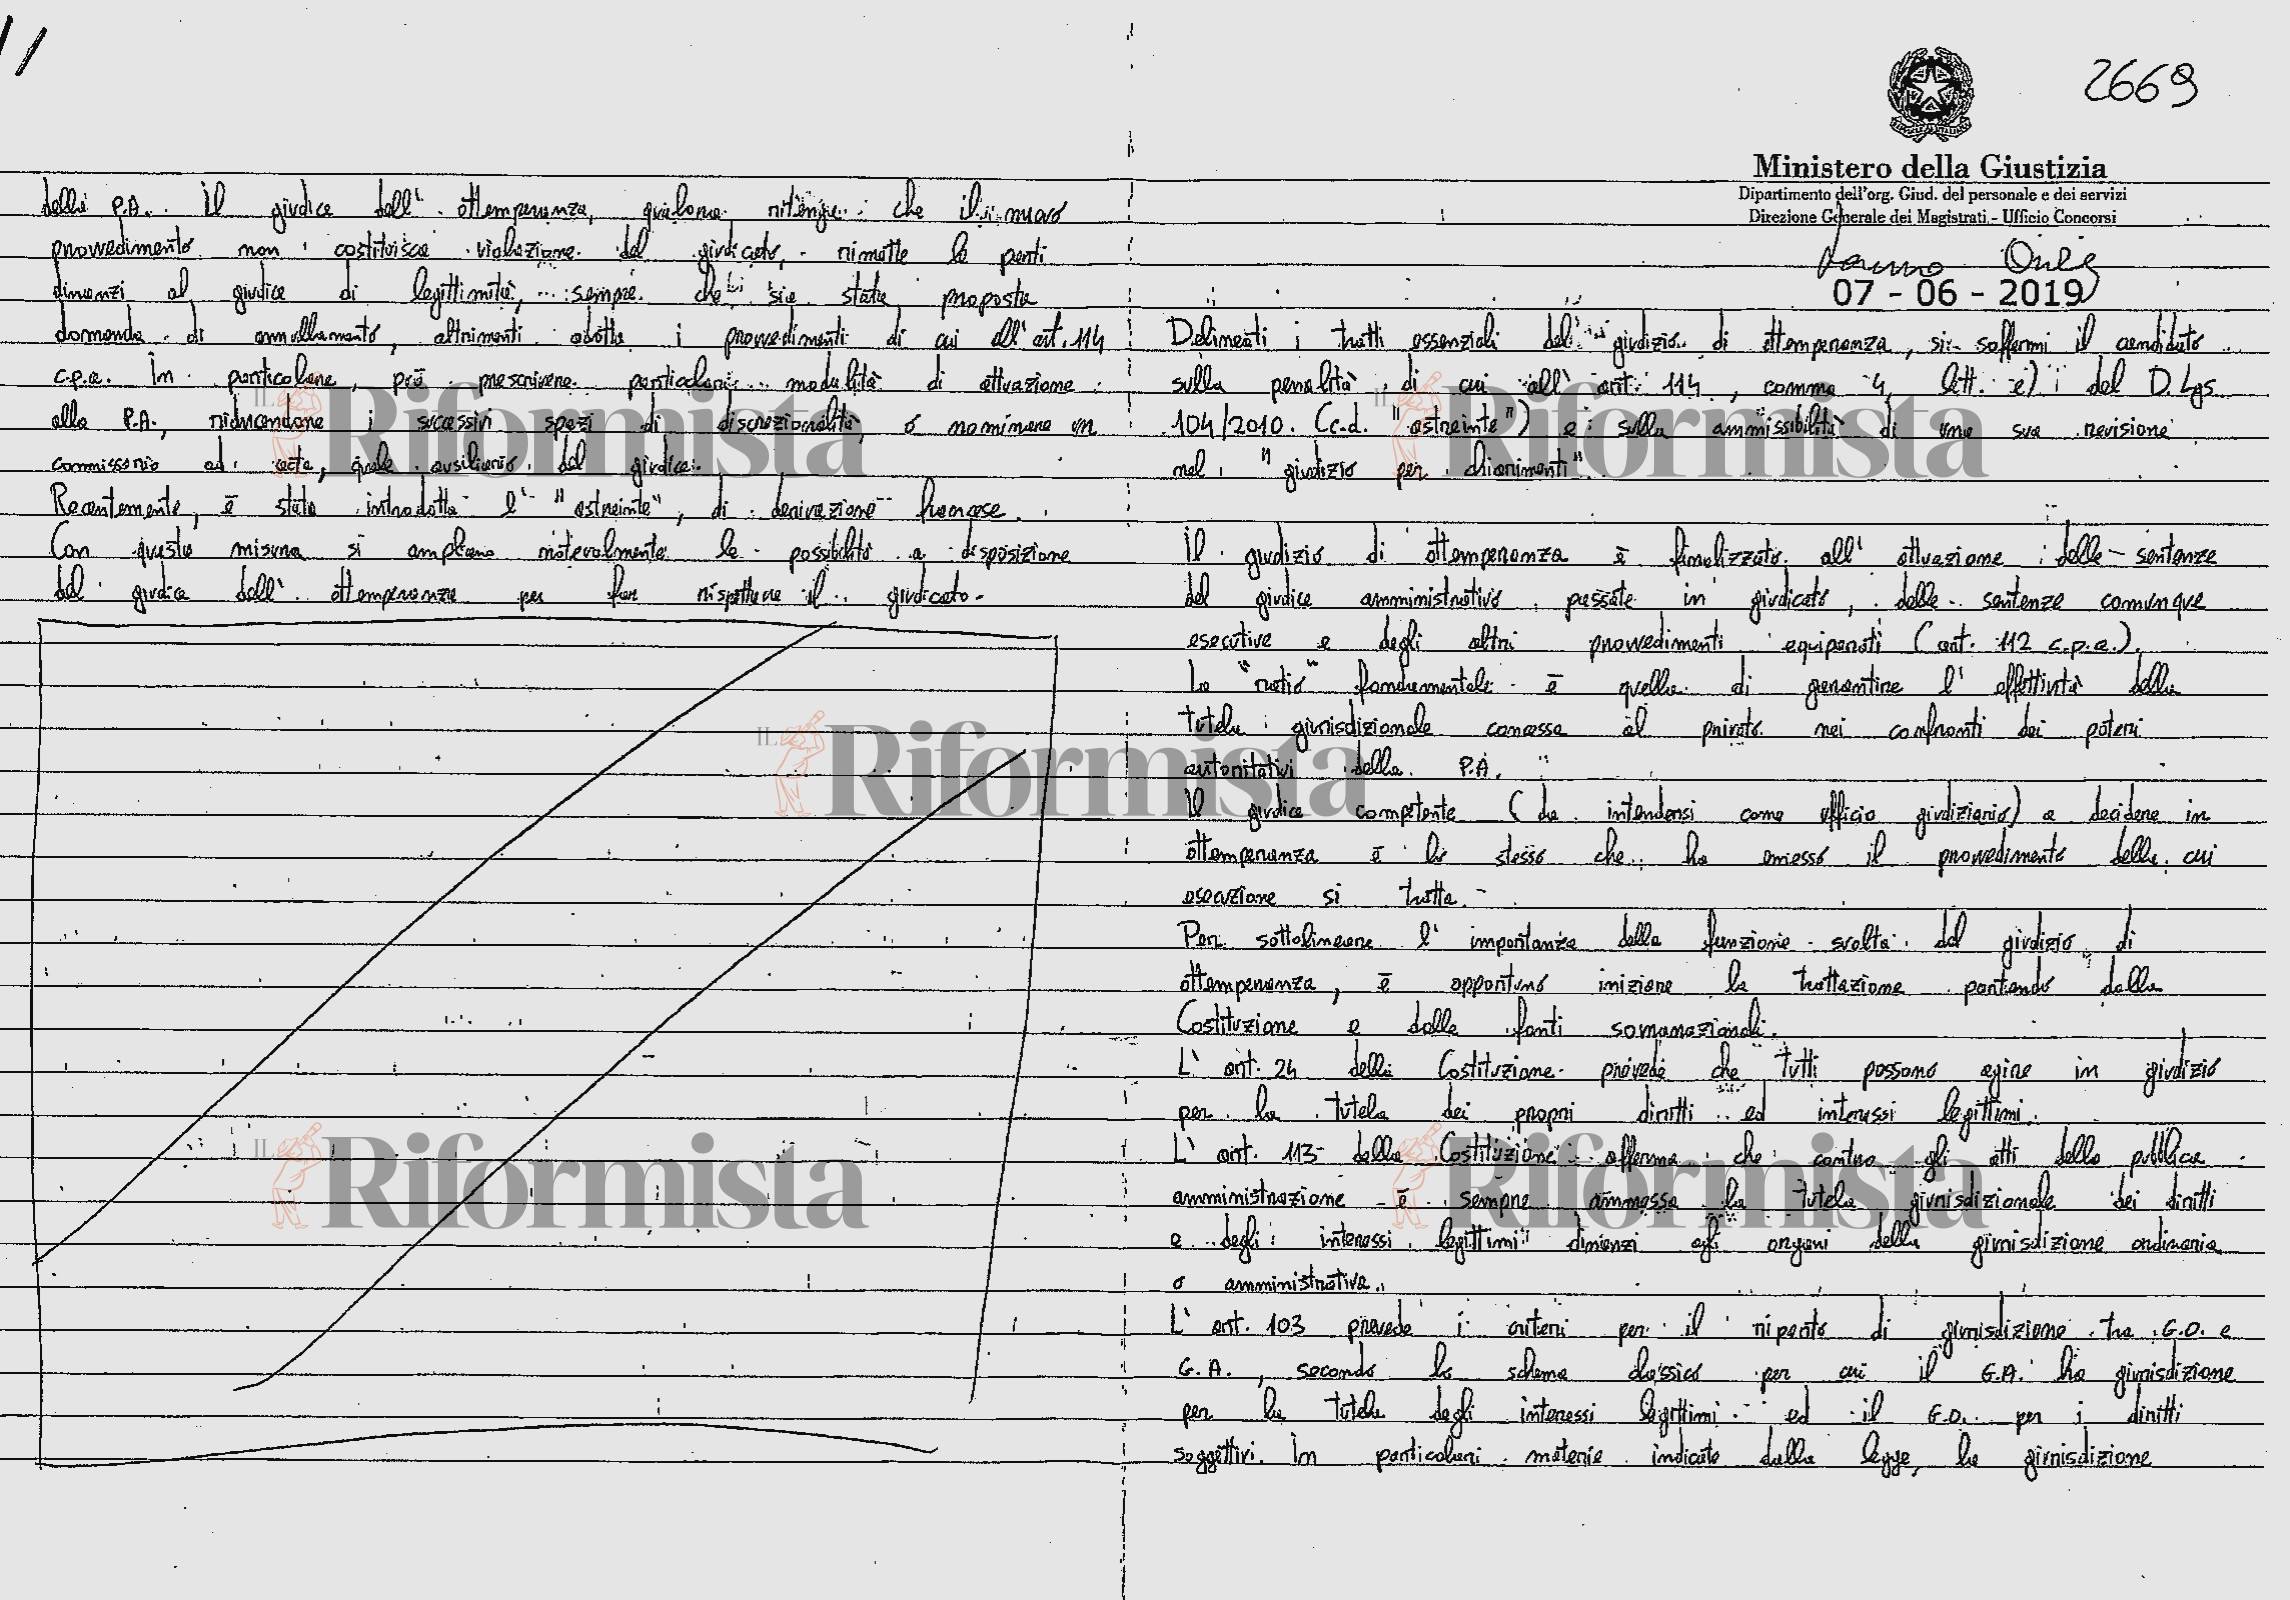 della P.A. Il giudice dell'ottemperanza, qualora ritenga che il nuovo
provvedimento non costituisca violazione del giudicato, rimette le parti
dinanzi al giudice di legittimità, sempre che sia stata proposta
domanda di annullamento, altrimenti adotta i provvedimenti di cui all'art. 114
c.p.a. In particolare, può prescrivere particolari modalità di attuazione
alla P.A., riducendone i successivi spazi di discrezionalità, o nominare un
commissario ad acta, quale ausiliario del giudice.
Recentemente, è stata introdotta l'"astreinte", di derivazione francese.
Con questa misura si ampliano notevolmente le possibilità a disposizione
del giudice dell'ottemperanza per far rispettare il giudicato.
2669
Ministero della Giustizia
Dipartimento dell'org. Giud. del personale e dei servizi
Direzione Generale dei Magistrati - Ufficio Concorsi
07 - 06 - 2019
Delineati i tratti essenziali del giudizio di ottemperanza, si soffermi il candidato
sulla penalità di cui all'art. 114, comma 4, lett. e) del D.Lgs.
104/2010 (c.d. "astreinte") e sulla ammissibilità di una sua revisione
nel "giudizio per chiarimenti"
Il giudizio di ottemperanza è finalizzato all'attuazione delle sentenze
del giudice amministrativo passate in giudicato, delle sentenze comunque
esecutive e degli altri provvedimenti equiparati (art. 112 c.p.a.).
La "ratio" fondamentale è quella di garantire l'effettività della
tutela giurisdizionale concessa al privato nei confronti dei poteri
autoritativi della P.A.
Il giudice competente (da intendersi come ufficio giudiziario) a decidere in
ottemperanza è lo stesso che ha emesso il provvedimento della cui
esecuzione si tratta.
Per sottolineare l'importanza della funzione svolta dal giudizio di
ottemperanza, è opportuno iniziare la trattazione partendo dalla
Costituzione e dalle fonti sovranazionali.
L'art. 24 della Costituzione prevede che tutti possono agire in giudizio
per la tutela dei propri diritti ed interessi legittimi.
L'art. 113 della Costituzione afferma che contro gli atti della pubblica
amministrazione è sempre ammessa la tutela giurisdizionale dei diritti
e degli interessi legittimi dinanzi agli organi della giurisdizione ordinaria
o amministrativa.
L'art. 103 prevede i criteri per il riparto di giurisdizione tra G.O. e
G.A., secondo lo schema classico per cui il G.A. ha giurisdizione
per la tutela degli interessi legittimi ed il G.O. per i diritti
soggettivi. In particolari materie indicate dalla legge, la giurisdizione
IL Riformista
IL Riformista
IL Riformista
IL Riformista
IL Riformista